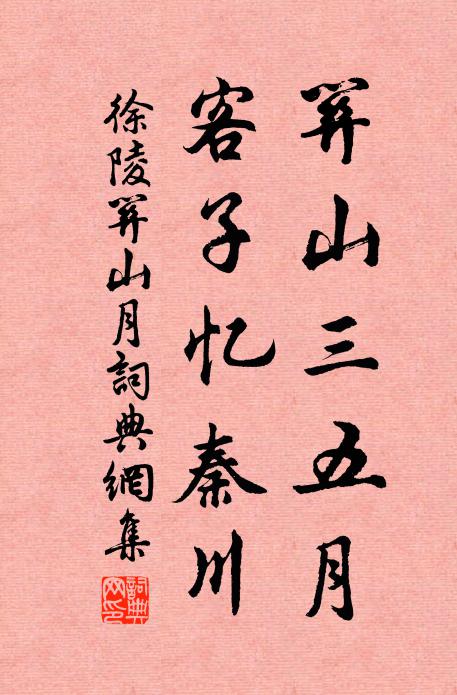 關山三五月
客子忆秦川
徐陵關山月詞典網集
詞典网印